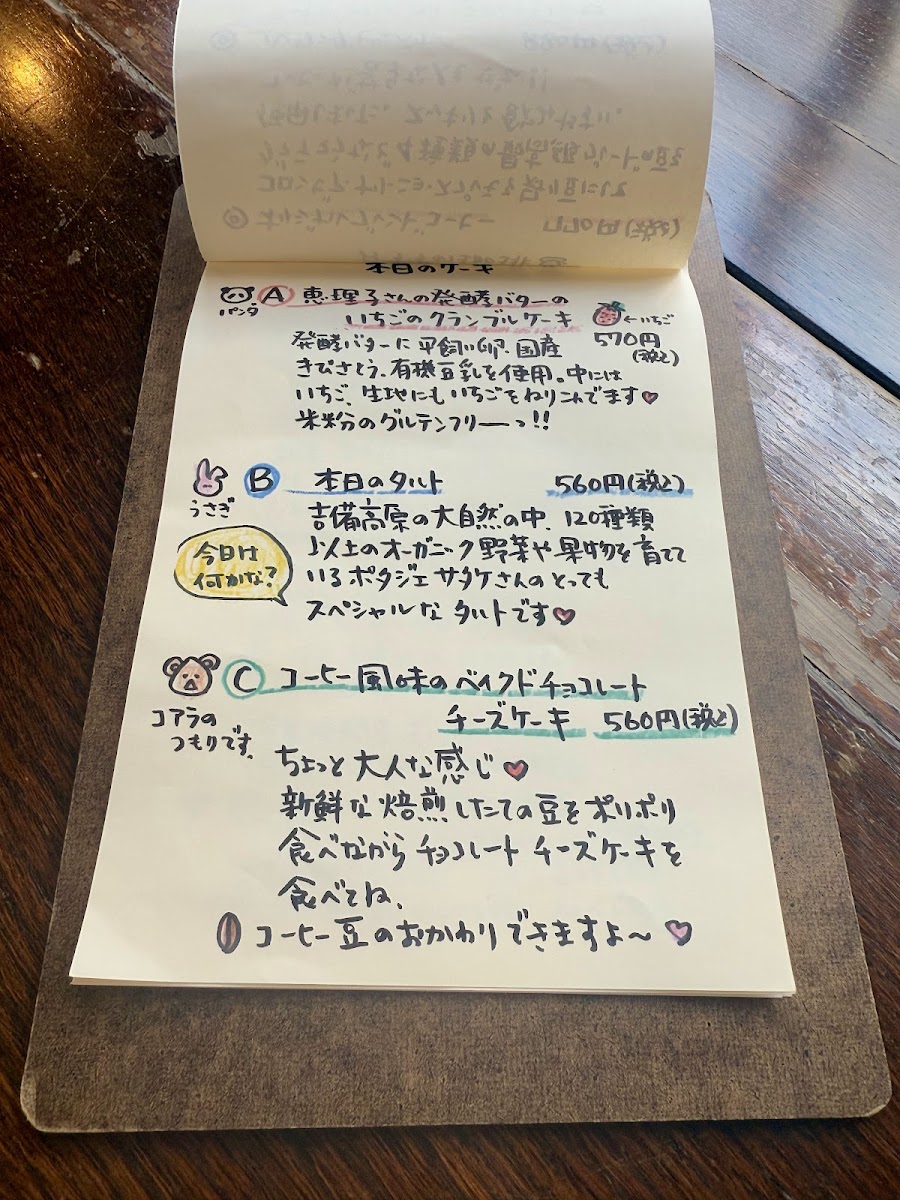 本日のケーキ
パンダ
A 恵理子さんの発酵バターの
いちごのクランブルケーキ
←いちご
570円
(税込)
発酵バターに平飼い卵、国産
きびさとう、有機豆乳を使用。中には
いちご、生地にもいちごをねりこんでます♥
米粉のグルテンフリーーっ!!
うさぎ
B 本日のタルト 560円(税込)
今日は
何かな?
吉備高原の大自然の中、120種類
以上のオーガニック野菜や果物を育てて
いるポタジェサタケさんのとっても
スペシャルなタルトです♥
コアラの
つもりです。
C コーヒー風味のベイクドチョコレート
チーズケーキ 560円(税込)
ちょっと大人な感じ♥
新鮮な焙煎したての豆をポリポリ
食べながらチョコレートチーズケーキを
食べてね、
コーヒー豆のおかわりできますよ〜♥